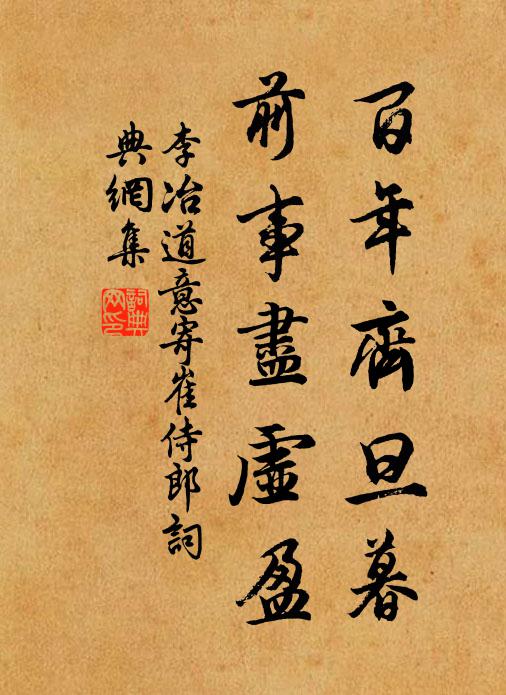 百年齊旦暮
前事盡虛盈
李冶道意寄崔侍郎詞
典網集
詞典網印